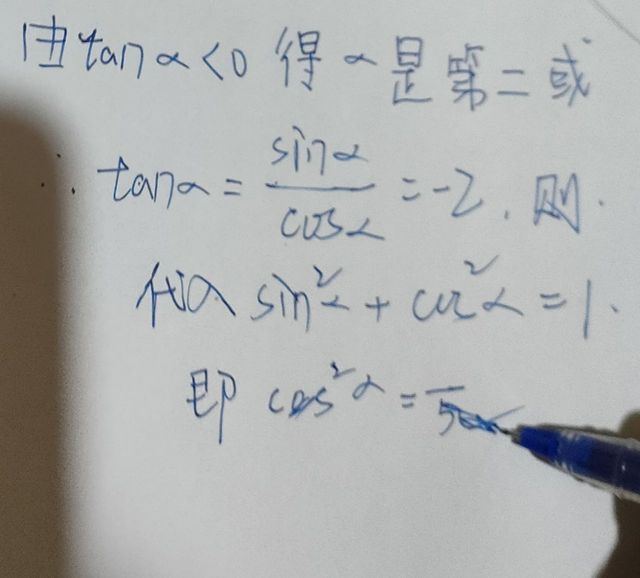 由tanα<0 得 α是第二或
∴ tanα = sinα/cosα = -2, 则
代入 sin²α + cos²α = 1.
即 cos²α = /5